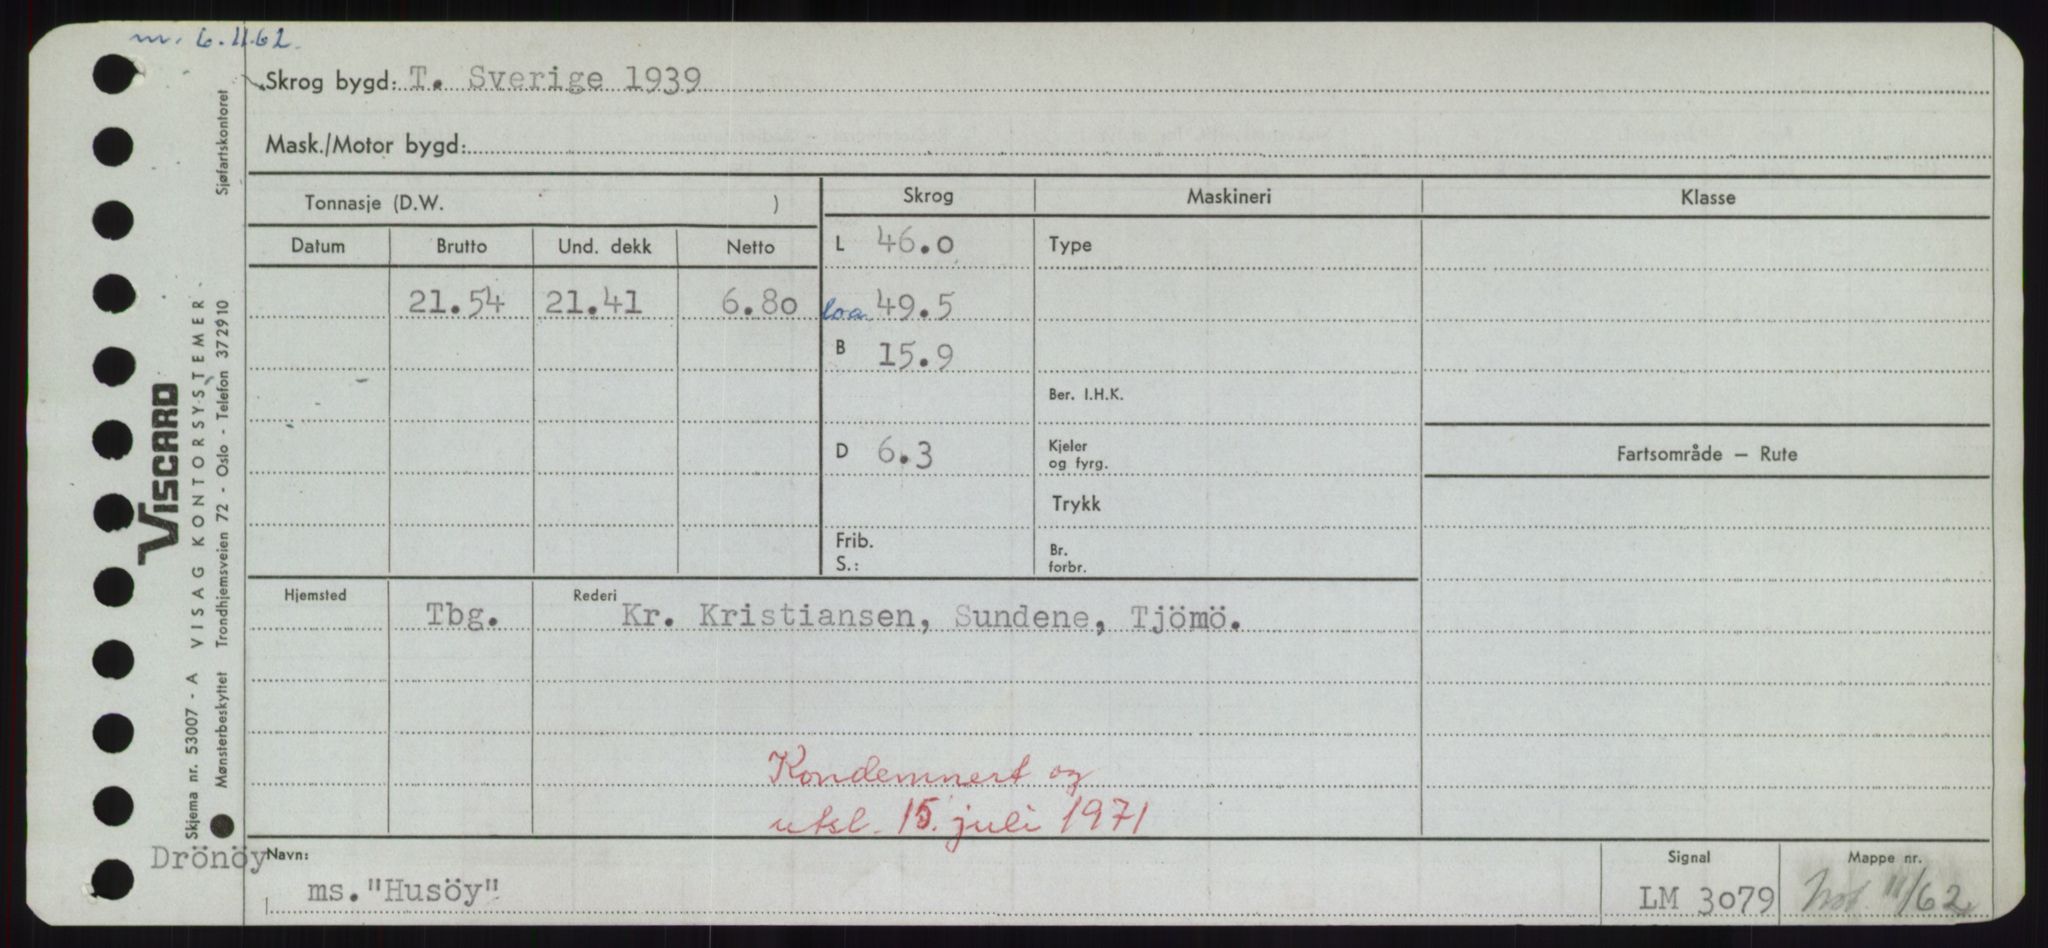 m. 6.11.62.
Skrog bygd: T. Sverige 1939
Mask./Motor bygd:
Tonnasje (D.W. )
Skrog
Maskineri
Klasse
Datum
Brutto
Und. dekk
Netto
L 46.0
Type
21.54
21.41
6.80
loa 49.5
B 15.9
Ber. I.H.K.
D 6.3
Kjeler
og fyrg.
Fartsområde — Rute
Trykk
Frib.
S.:
Br.
forbr.
Hjemsted
Tbg.
Rederi
Kr. Kristiansen, Sundene, Tjömö.
Kondemnert og
utsl. 15. juli 1971
Drönöy
Navn:
ms. "Husöy"
Signal
LM 3079
Mappe nr.
Not 11/62
Skjema nr. 53007 - A VISAG KONTORSYSTEMER
Mønsterbeskyttet Trondhjemsveien 72 - Oslo - Telefon 372910 Sjøfartskontoret
VISCARD